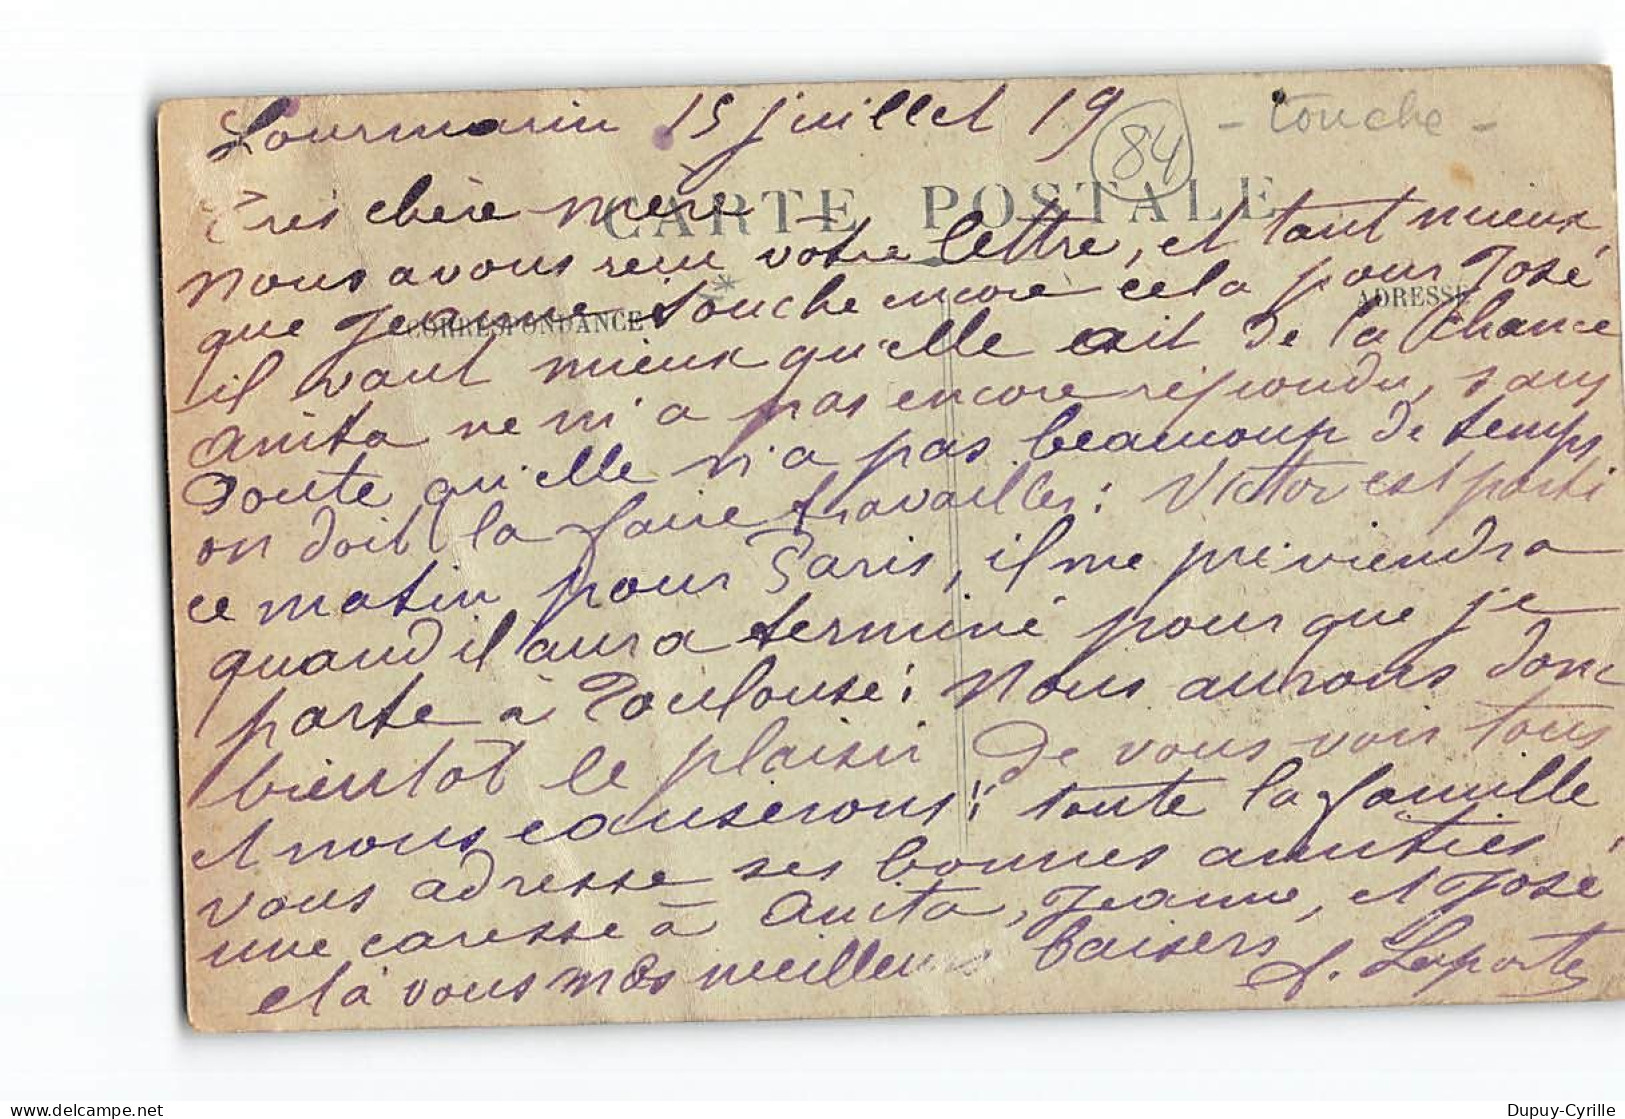 Lourmarin 15 juillet 19
84
- touche -
CARTE POSTALE
Très chère mère -
Nous avons reçu votre lettre, et tant mieux
CORRESPONDANCE
ADRESSE
que Jeanne touche encore cela pour José
il vaut mieux qu'elle ait de la chance
Anita ne m'a pas encore répondu, sans
doute qu'elle n'a pas beaucoup de temps
on doit la faire travailler: Victor est parti
ce matin pour Paris, il me préviendra
quand il aura terminé pour que je
parte à Toulouse: Nous aurons donc
bientôt le plaisir de vous voir tous
et nous causerons! toute la famille
vous adresse ses bonnes amitiés,
une caresse à Anita, Jeanne, et José
et à vous mes meilleurs baisers
L. Laporte
Dupuy-Cyrille